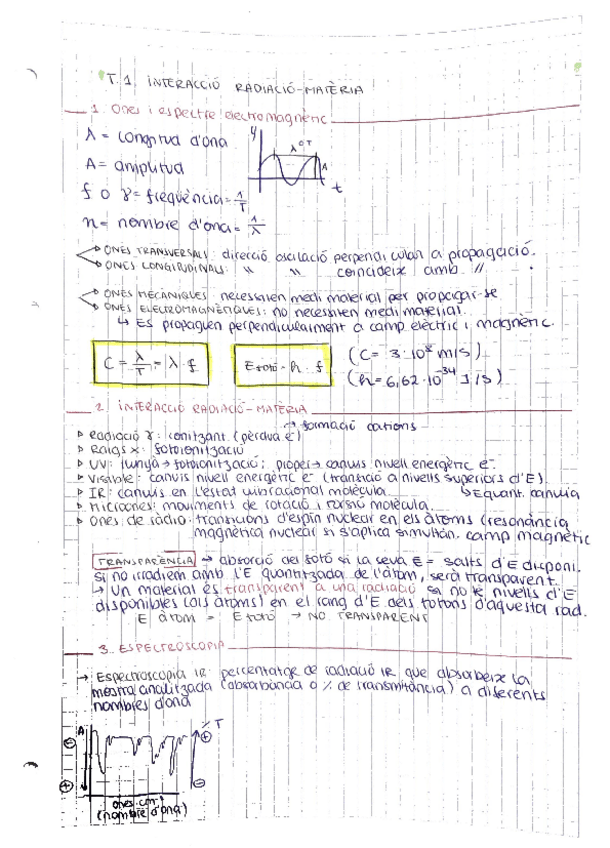 T.1. INTERACCIÓ RADIACIÓ-MATÈRIA
1. Ones i espectre electromagnètic
λ = longitud d'ona
A = amplitud
f o γ = freqüència = 1/T
n = nombre d'ona = 1/λ
y
λ o T
A
t
ONES TRANSVERSALS: direcció oscilació perpendicular a propagació.
ONES LONGITUDINALS: " " coincideix amb "
ONES MECÀNIQUES: necessiten medi material per propagar-se
ONES ELECTROMAGNÈTIQUES: no necessiten medi material.
↳ Es propaguen perpendicularment a camp elèctric i magnètic.
C = λ/T = λ · f
E fotó = h · f
(C = 3·10⁸ m/s)
(h = 6,62·10⁻³⁴ J/s)
2. INTERACCIÓ RADIACIÓ-MATÈRIA
→ formació cations
Radiació γ: ionitzant (pèrdua e⁻)
Raigs x: fotoionització
UV: llunyà → fotoionització; proper → canvis nivell energètic e⁻.
Visible: canvis nivell energètic e⁻ (transició a nivells superiors d'E)
IR: canvis en l'estat vibracional molècula. ↳ E quant. canvia
Microones: moviments de rotació i torsió molècula.
Ones de ràdio: transicions d'espin nuclear en els àtoms (resonància
magnètica nuclear si s'aplica simultàn. camp magnètic
TRANSPARÈNCIA → absorció del fotó si la seva E = salts d'E disponi.
Si no irradiem amb l'E quantitzada de l'àtom, serà transparent.
→ Un material és transparent a una radiació si no té nivells d'E
disponibles (als àtoms) en el rang d'E dels fotons d'aquesta rad.
E àtom = E fotó → NO TRANSPARENT
3. ESPECTROSCOPIA
→ Espectroscopia IR: percentatge de radiació IR que absorbeix la
mostra analitzada (absorbància o % de transmitància) a diferents
nombres d'ona
A
% T
⊖
⊕
⊕
⊖
ones cm⁻¹
(nombre d'ona)